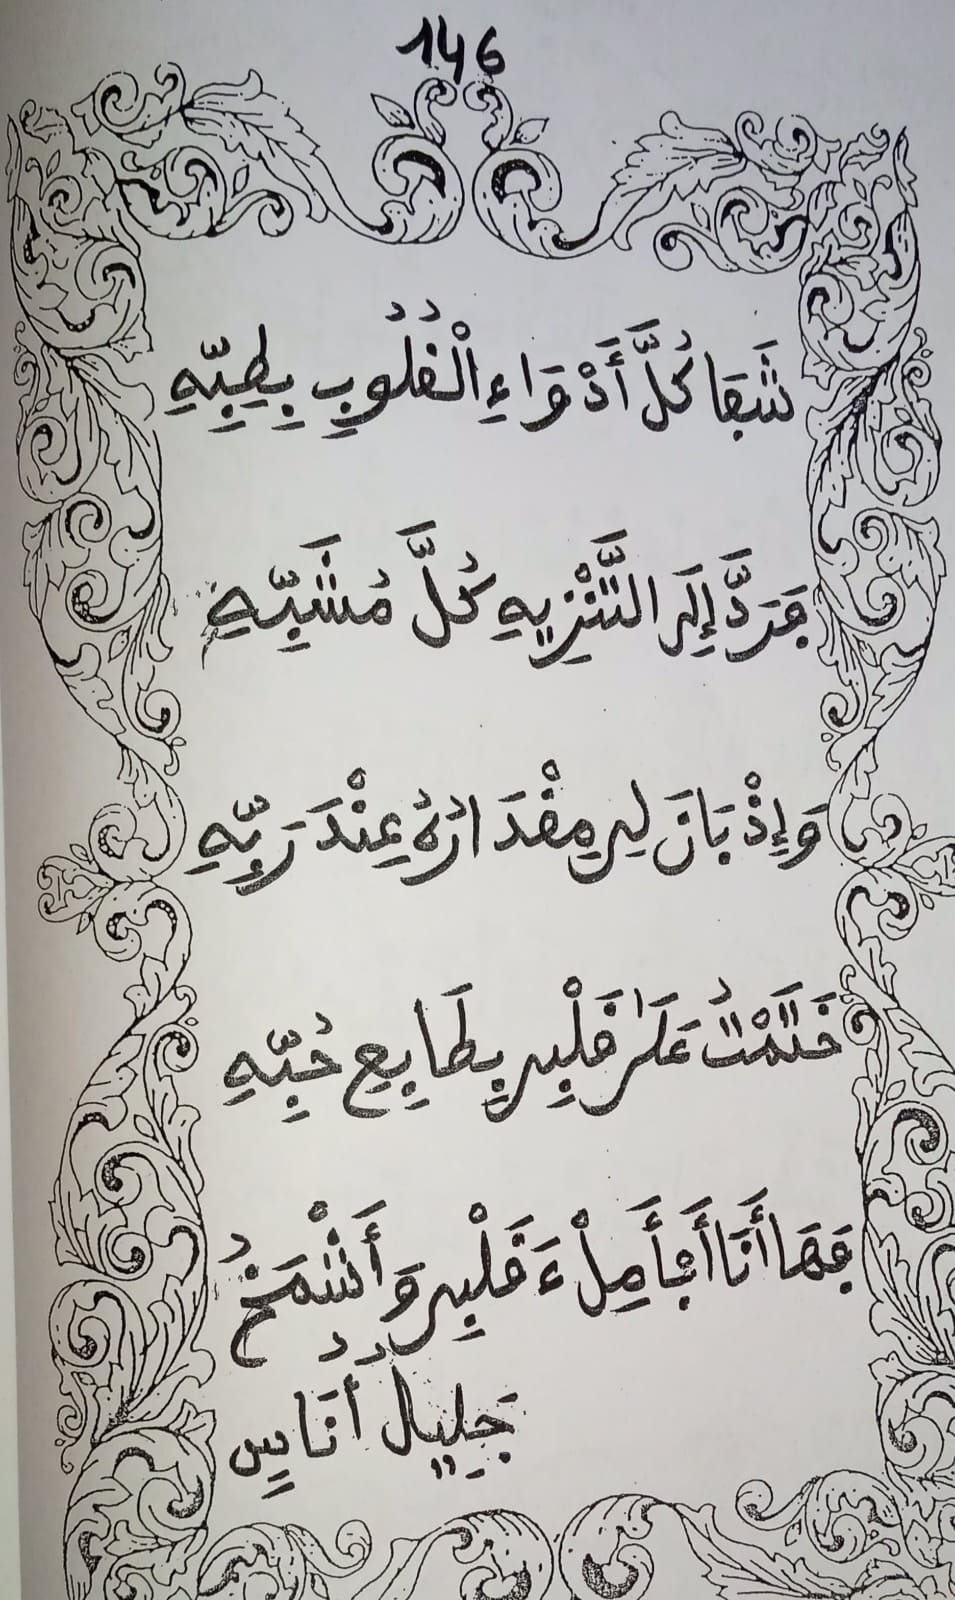 146
شَفَا كُلَّ أَدْوَاءِ الْقُلُوبِ بِطِبِّهِ
فَرَدَّ إِلَى التَّنْزِيهِ كُلَّ مُشَبِّهِ
وَإِذْ بَانَ لِي مِقْدَارُهُ عِنْدَ رَبِّهِ
خَتَمْتُ عَلَى قَلْبِي بِطَابِعِ حُبِّهِ
فَهَا أَنَا أَمْلَأُ قَلْبِي وَأَشْمَخُ
جَلِيلُ أُنَاسٍ